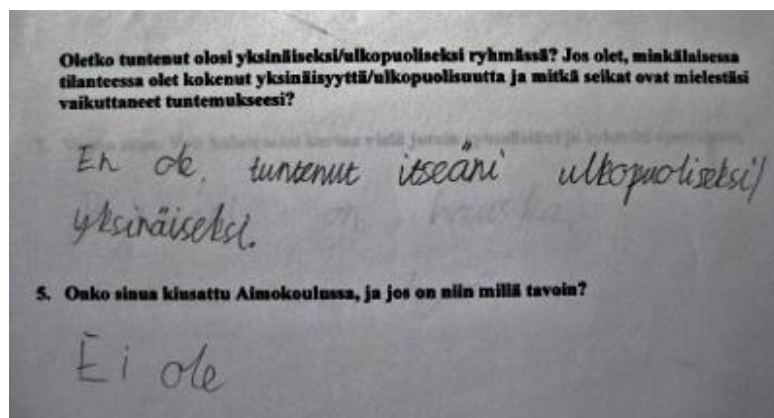 Oletko tuntenut olosi yksinäiseksi/ulkopuoliseksi ryhmässä? Jos olet, minkälaisessa
tilanteessa olet kokenut yksinäisyyttä/ulkopuolisuutta ja mitkä seikat ovat mielestäsi
vaikuttaneet tuntemukseesi?
En ole, tuntenut itseäni ulkopuoliseksi/
yksinäiseksi.
5. Onko sinua kiusattu Aimokoulussa, ja jos on niin millä tavoin?
Ei ole